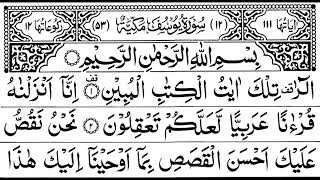 اٰیَاتُهَا ۱۱۱ (۱۲) سُوْرَةُ یُوْسُفَ مَكِّیَّةٌ (۵۳) رُكُوْعَاتُهَا ۱۲
بِسْمِ اللّٰهِ الرَّحْمٰنِ الرَّحِیْمِ
الٓرٰ ۫ تِلْكَ اٰیٰتُ الْكِتٰبِ الْمُبِیْنِ ۟ۙ۱ اِنَّاۤ اَنْزَلْنٰهُ
قُرْءٰنًا عَرَبِیًّا لَّعَلَّكُمْ تَعْقِلُوْنَ ۟۲ نَحْنُ نَقُصُّ
عَلَیْكَ اَحْسَنَ الْقَصَصِ بِمَاۤ اَوْحَیْنَاۤ اِلَیْكَ هٰذَا